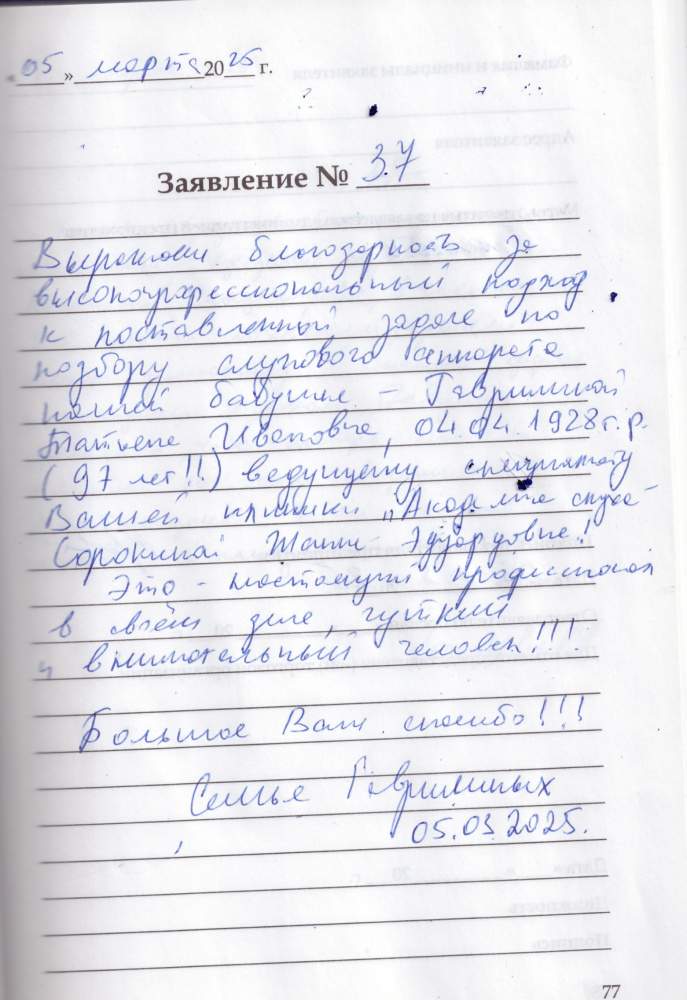 «05» марта 2025 г.
Заявление № 37
Выражаем благодарность за
высокопрофессиональный подход
к поставленной задаче по
подбору слухового аппарата
нашей бабушке –
Татьяне Ивановне, 04.04.1928 г.р.
(97 лет!!) ведущему специалисту
Вашей клиники „Академия слуха“
Сорокиной Жанне Эдуардовне!
Это – настоящий профессионал
в своём деле, чуткий
и внимательный человек!!!
Большое Вам спасибо!!!
Семья
05.03.2025.
77